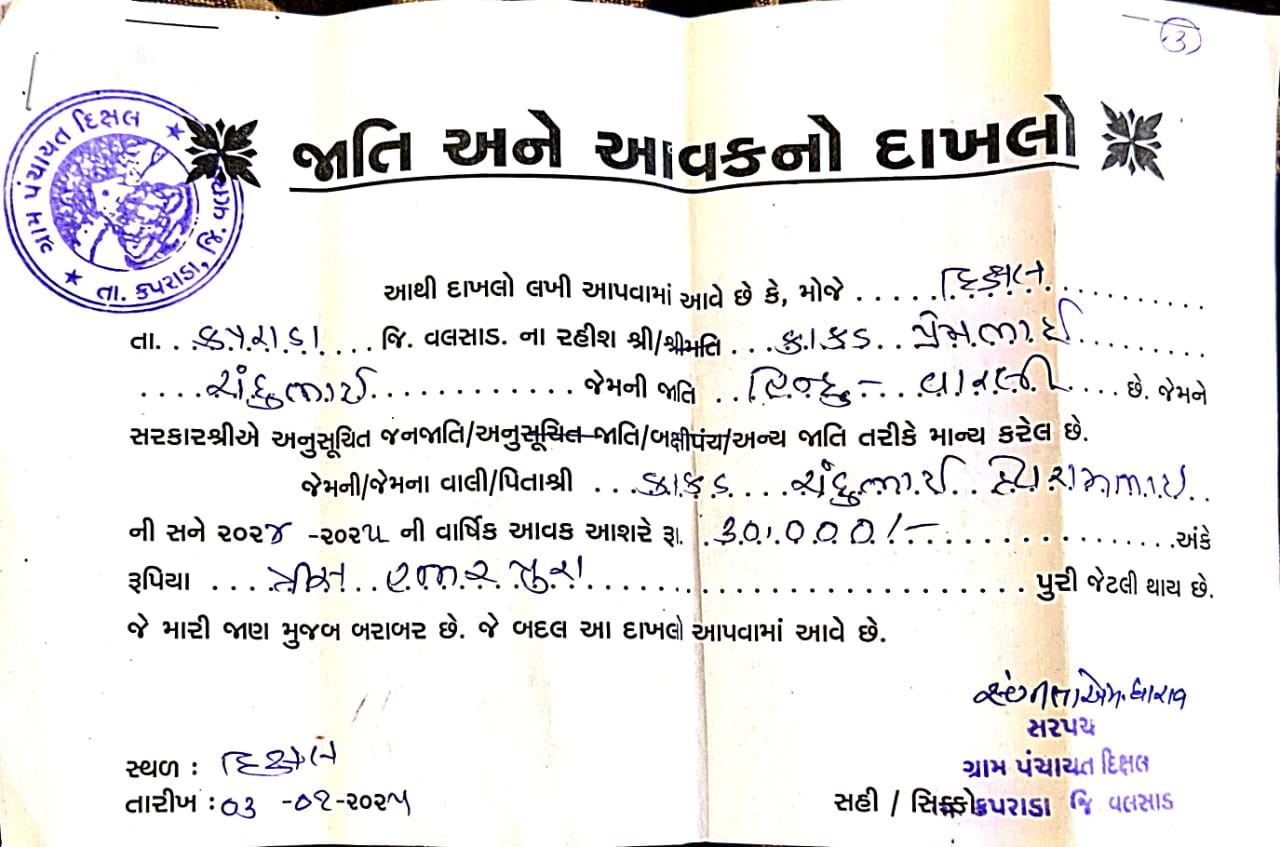 ૩
ગ્રામ પંચાયત દિક્ષલ
તા. કપરાડા, જિ. વલસાડ
જાતિ અને આવકનો દાખલો
આથી દાખલો લખી આપવામાં આવે છે કે, મોજે .....દિક્ષલ..........
તા...કપરાડા.... જિ. વલસાડ. ના રહીશ શ્રી/શ્રીમતિ...કાકડ..પ્રેમભાઈ.........
....ચંદુભાઈ............ જેમની જાતિ ..હિન્દુ-..વારલી.... છે. જેમને
સરકારશ્રીએ અનુસૂચિત જનજાતિ/અનુસૂચિત જાતિ/બક્ષીપંચ/અન્ય જાતિ તરીકે માન્ય કરેલ છે.
જેમની/જેમના વાલી/પિતાશ્રી ...કાકડ....ચંદુભાઈ..
ની સને ૨૦૨૪ -૨૦૨૫ ની વાર્ષિક આવક આશરે રૂા. .30,000/-................અંકે
રૂપિયા ....ત્રીસ..હજાર પુરા.......................... પુરી જેટલી થાય છે.
જે મારી જાણ મુજબ બરાબર છે. જે બદલ આ દાખલો આપવામાં આવે છે.
સરપંચ
સ્થળ : દિક્ષલ
ગ્રામ પંચાયત દિક્ષલ
તારીખ : 03 -02-૨૦૨૫
સહી / સિક્કો કપરાડા જિ વલસાડ